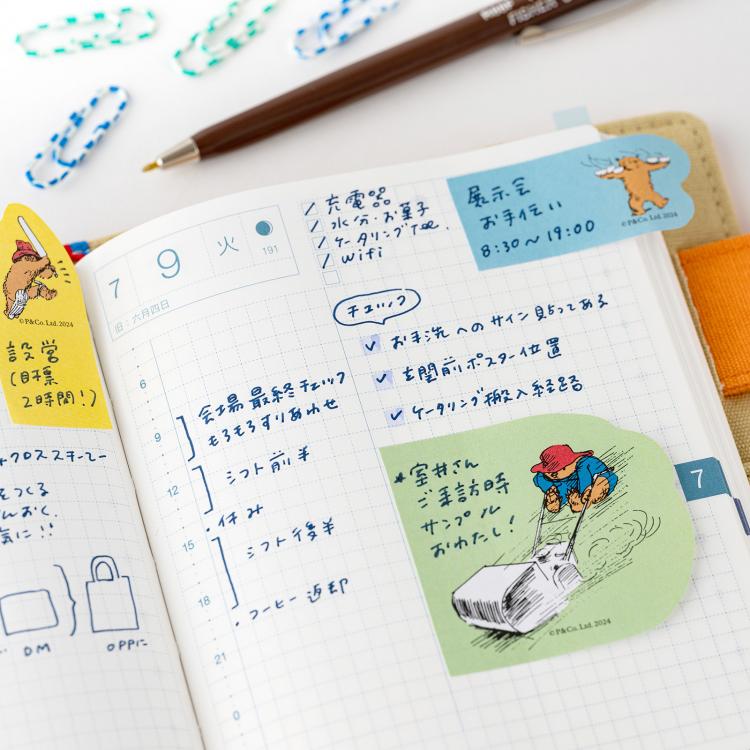 FISHER
© P&Co. Ltd. 2024
設営
(目標
2時間!)
クロススチーマー
をつくる
んおく。
気に!!
DM
OPPに
7 9 火
191
旧:六月四日
充電器
水分・お菓子
ケータリングTEL.
Wifi
展示会
お手伝い
8:30〜19:00
© P&Co. Ltd. 2024
チェック
お手洗へのサイン貼ってある
玄関前ポスター位置
ケータリング搬入経路
6
9
12
15
18
21
0
会場最終チェック
もろもろすりあわせ
シフト前半
・休み
シフト後半
・コーヒー返却
*室井さん
ご来訪時
サンプル
おわたし!
© P&Co. Ltd. 2024
7